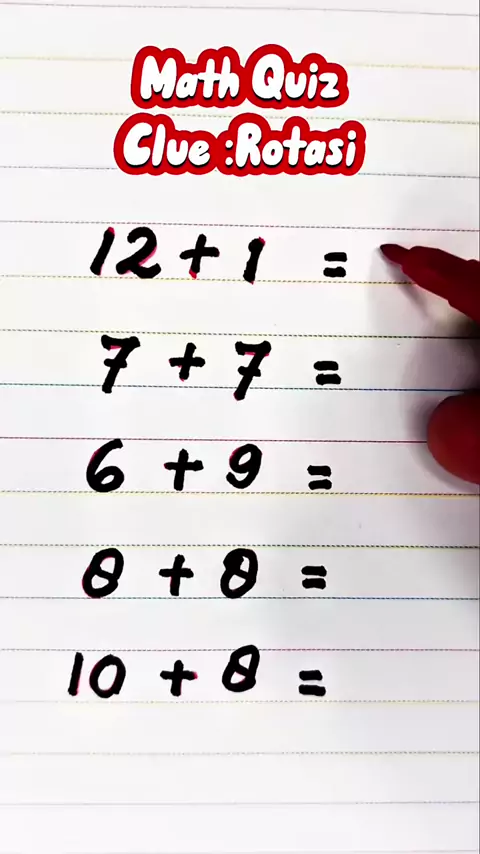 Math Quiz
Clue :Rotasi
12 + 1 =
7 + 7 =
6 + 9 =
8 + 8 =
10 + 8 =